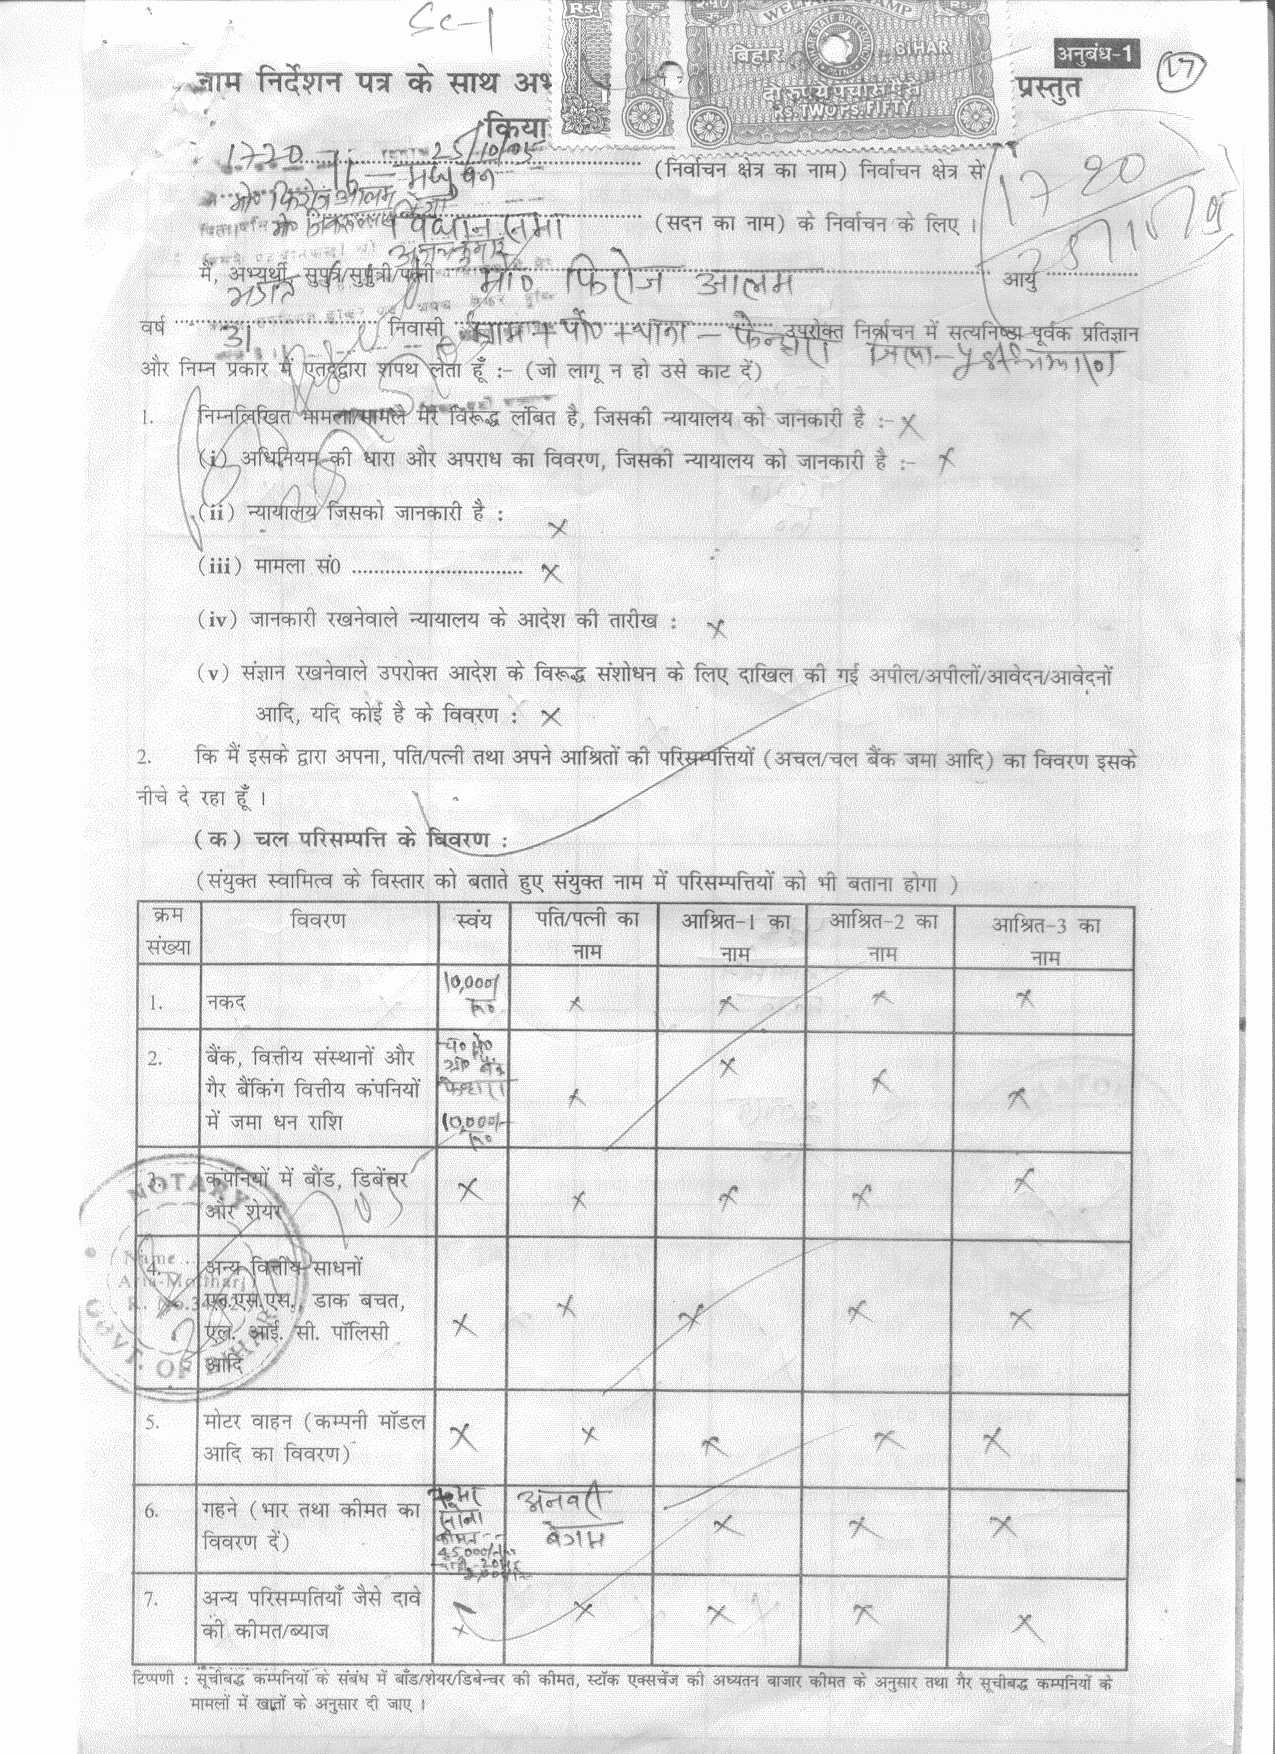 Sc-1
WELFARE STAMP
बिहार BIHAR
दो रुपये पचास पैसे
Rs. TWO Ps. FIFTY
अनुबंध-1
17
नाम निर्देशन पत्र के साथ प्रस्तुत
किया
1720 25/10/05
16 - मधुबन (निर्वाचन क्षेत्र का नाम) निर्वाचन क्षेत्र से
1720
मो० फिरोज आलम
विधान सभा (सदन का नाम) के निर्वाचन के लिए ।
मैं, अभ्यर्थी सुपुत्र/सुपुत्री/पत्नी मो० फिरोज आलम आयु
वर्ष 31 निवासी ग्राम + पो० + थाना - फेनहारा उपरोक्त निर्वाचन में सत्यनिष्ठा पूर्वक प्रतिज्ञान
और निम्न प्रकार में एतद्द्वारा शपथ लेता हूँ :- (जो लागू न हो उसे काट दें)
1. निम्नलिखित मामला/मामले मेरे विरूद्ध लंबित है, जिसकी न्यायालय को जानकारी है :- x
(i) अधिनियम की धारा और अपराध का विवरण, जिसकी न्यायालय को जानकारी है :- x
(ii) न्यायालय जिसको जानकारी है : x
(iii) मामला सं0 .............................. x
(iv) जानकारी रखनेवाले न्यायालय के आदेश की तारीख : x
(v) संज्ञान रखनेवाले उपरोक्त आदेश के विरूद्ध संशोधन के लिए दाखिल की गई अपील/अपीलों/आवेदन/आवेदनों
आदि, यदि कोई है के विवरण : x
2. कि मैं इसके द्वारा अपना, पति/पत्नी तथा अपने आश्रितों की परिसम्पत्तियों (अचल/चल बैंक जमा आदि) का विवरण इसके
नीचे दे रहा हूँ ।
(क) चल परिसम्पत्ति के विवरण :
(संयुक्त स्वामित्व के विस्तार को बताते हुए संयुक्त नाम में परिसम्पत्तियों को भी बताना होगा )
क्रम संख्या विवरण स्वंय पति/पत्नी का नाम आश्रित-1 का नाम आश्रित-2 का नाम आश्रित-3 का नाम
1. नकद 10,000/ रू० x x x x
2. बैंक, वित्तीय संस्थानों और
गैर बैंकिंग वित्तीय कंपनियों
में जमा धन राशि 10,000/- रू० x x x x
3. कंपनियों में बौंड, डिबेंचर
और शेयर x x x x x
4. अन्य वित्तीय साधनों
एन.एस.एस., डाक बचत,
एल. आई. सी. पॉलिसी
आदि x x x x x
NOTARY
GOVT. OF BIHAR
5. मोटर वाहन (कम्पनी मॉडल
आदि का विवरण) x x x x x
6. गहने (भार तथा कीमत का
विवरण दें) सोना कीमत 45000/- अनवरी बेगम x x x
7. अन्य परिसम्पतियाँ जैसे दावे
की कीमत/ब्याज x x x x x
टिप्पणी : सूचीबद्ध कम्पनियों के संबंध में बौंड/शेयर/डिबेन्चर की कीमत, स्टॉक एक्सचेंज की अध्यतन बाजार कीमत के अनुसार तथा गैर सूचीबद्ध कम्पनियों के
मामलों में खातों के अनुसार दी जाए ।